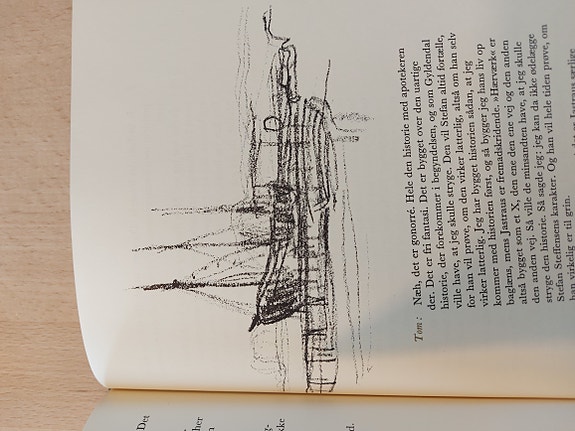 Tom: Næh, det er gonorré. Hele den historie med apotekeren
der. Det er fri fantasi. Det er bygget over den uartige
historie, der forekommer i begyndelsen, og som Gyldendal
ville have, at jeg skulle stryge. Den vil Stefan altid fortælle,
for han vil prøve, om den virker latterlig, altså om han selv
virker latterlig. Jeg har bygget historien sådan, at jeg
kommer med historien først, og så bygger jeg hans liv op
baglæns, mens Jastraus er fremadskridende. »Hærværk« er
altså bygget som et X, den ene den ene vej og den anden
den anden vej! Så ville de minsandten have, at jeg skulle
stryge den historie. Så sagde jeg: jeg kan da ikke ødelægge
Stefan Steffensens karakter. Og han vil hele tiden prøve, om
han virkelig er til grin.
Jastraus særlige
Det
her
ikke
d.